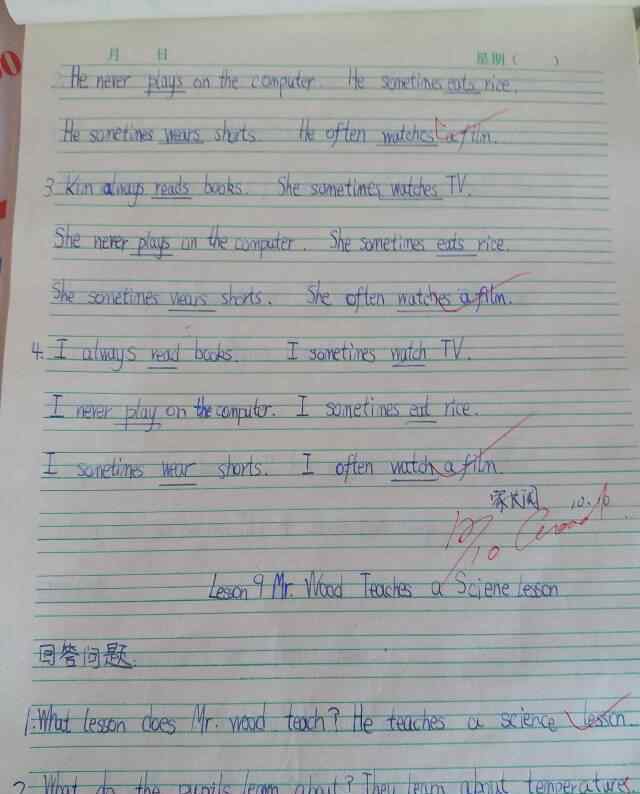 月 日 星期( )
He never plays on the computer. He sometimes eats rice.
He sometimes wears shorts. He often watches a film.
3. Kim always reads books. She sometimes watches TV.
She never plays on the computer. She sometimes eats rice.
She sometimes wears shorts. She often watches a film.
4. I always read books. I sometimes watch TV.
I never play on the computer. I sometimes eat rice.
I sometimes wear shorts. I often watch a film.
家长阅 10.10
10
Lesson 9 Mr. Wood Teaches a Sciene Lesson
回答问题.
1. What lesson does Mr. wood teach? He teaches a science lesson.
2. What do the pupils learn about? They learn about temperatures.